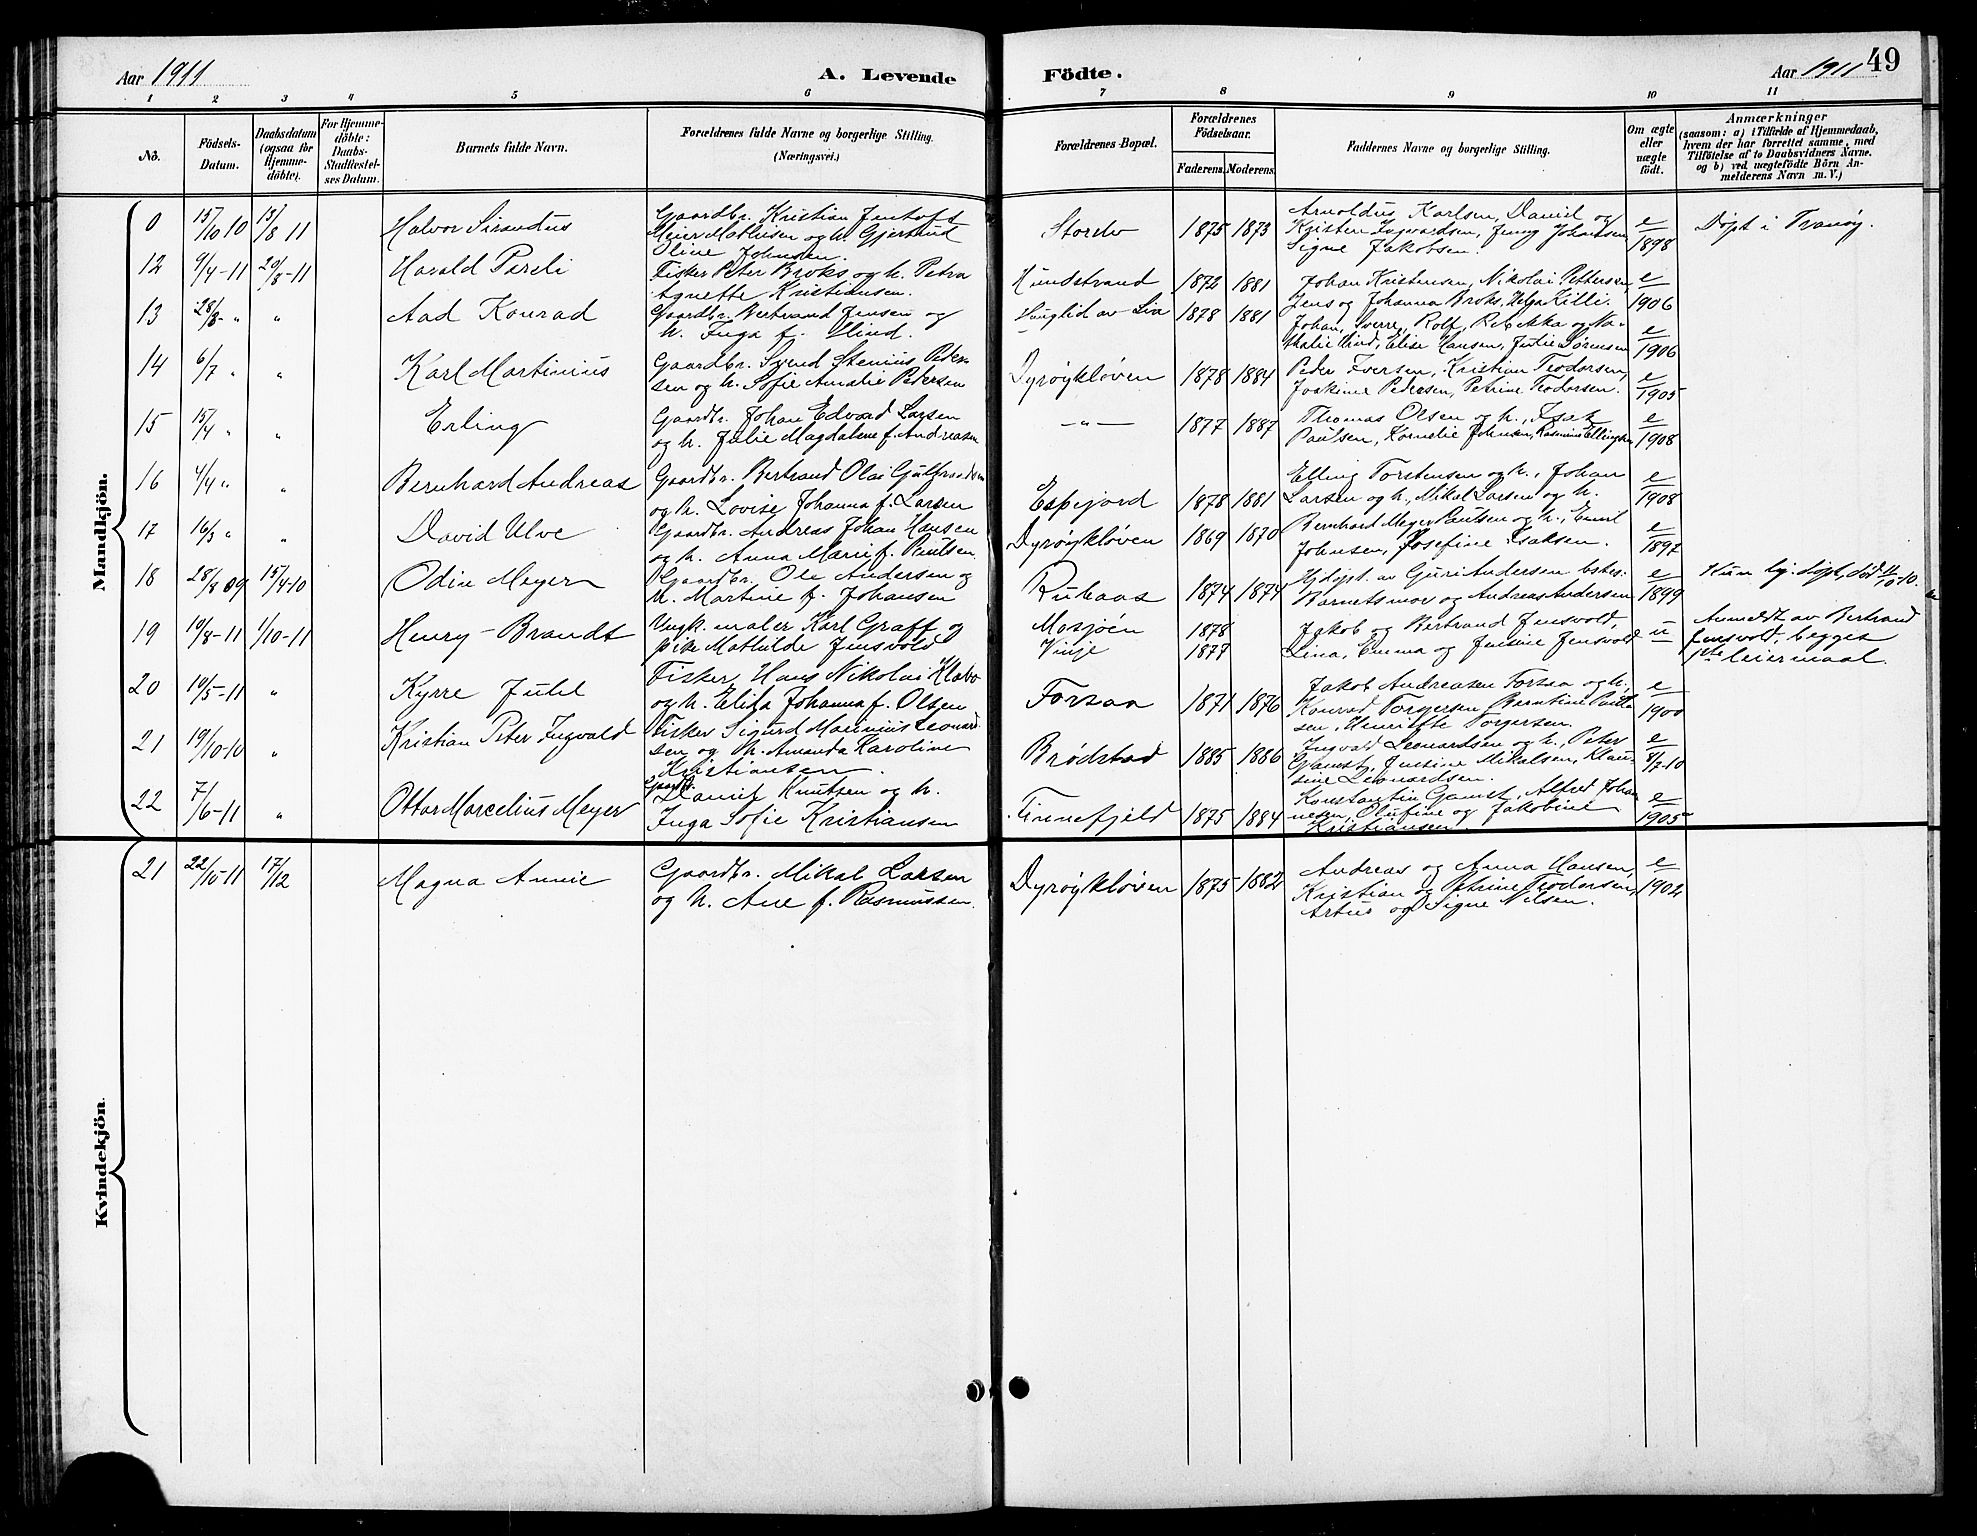 Aar 1911
A. Levende
Födte.
Aar 1911
49
1 2 3 4 5 6 7 8 9 10 11
No.
Födsels-
Datum.
Daabsdatum
(ogsaa for
Hjemme-
döbte).
For Hjemme-
döbte:
Daabs-
Stadfæstel-
ses Datum.
Barnets fulde Navn.
Forældrenes fulde Navne og borgerlige Stilling.
(Næringsvei.)
Forældrenes Bopæl.
Forældrenes
Födselsaar.
Faderens. Moderens.
Faddernes Navne og borgerlige Stilling.
Om ægte
eller
uægte
födt.
Anmærkninger
(saasom: a) i Tilfælde af Hjemmedaab,
hvem der har forrettet samme, med
Tilföielse af to Daabsvidners Navne.
og b) ved uægtefödte Börn An-
melderens Navn m. V.)
Mandkjön.
0 15/10 10 13/8 11 Halvor Sirandus
Gaardbr. Kristian Jentoft
Meier Mathisen og h. Gjertrud
Oline Johnsen.
Storelv 1875 1873
Arnoldus Karlsen, Daniel og
Kristen Ingvardsen, Jenny Johansen,
Signe Jakobsen.
e/1898 Døpt i Tranøy.
12 9/4-11 20/8-11 Harald Pireli
Fisker Peter Broks og h. Petra
Agnette Kristiansen.
Hundstrand 1872 1881
Johan Kristensen, Nikolai Pettersen,
Jens og Johanna Broks, Helga Killi.
e/1906
13 28/3- „ „ Aad Konrad
Gaardbr. Bertrand Jensen og
h. Inga f. Lind.
Hauglid av Liv 1878 1881
Johan, Sverre, Rolf, Rebekka og Na-
thalie Lind, Elise Hansen, Julie Sørensen
e/1906
14 6/7 „ „ Karl Martinius
Gaardbr. Svend Stenius Peder-
sen og h. Sofie Amalie Petersen
Dyrøykløven 1878 1884
Peder Iversen, Kristian Teodorsen,
Joakine Pedersen, Petrine Teodorsen.
e/1905
15 15/4 „ „ Erling
Gaardbr. Johan Edvard Larsen
og h. Julie Magdalene f. Andreasen
— „ — 1877 1887
Thomas Olsen og h., Isak
Paulsen, Kornelie Johnsen, Rasmus Ellingsen
e/1908
16 4/4 „ „ Bernhard Andreas
Gaardbr. Bertrand Olai Gulbrandsen
og h. Lovise Johanna f. Larsen
Espejord 1878 1881
Elling Torstensen og h., Johan
Larsen og h., Mikal Larsen og h.
e/1908
17 16/3 „ „ David Ulve
Gaardbr. Andreas Johan Hansen
og h. Anna Marie f. Paulsen
Dyrøykløven 1869 1870
Bernhard Meyer Paulsen og h., Emil
Johnsen, Josefine Isaksen.
e/1897
18 28/8 09 15/4-10 Odin Meyer
Gaardbr. Ole Andersen og
h. Martine f. Johansen
Rubaas 1874 1874
Hjdøpt. av Guri Andersen bster:
Barnets mor og Andreas Andersen
e/1899 Kun hj.døpt, død 12/10-10.
19 19/8-11 1/10-11 Henry-Brandt
Ungk. maler Karl Graff og
pike Mathilde Jensvold
Mosjøen
Vinje
1878
1877
Jakob og Bertrand Jensvold,
Lina, Emma og Jensine Jensvold
u
Anmeldt av Bertrand
Jensvold, begges
1ste leiermaal.
20 19/5-11 „ Kyrre Juhl
Fisker Hans Nikolai Klabo
og h. Elida Johanna f. Olsen
Forsaa 1871 1876
Jakob Andreasen Forsaa og h.
Konrad Torgersen Berntine Paul-
sen, Henriette Torgersen.
e/1900
21 19/10-10 „ Kristian Peter Ingvald
Fisker Sigurd Marinius Leonard-
sen og h. Amanda Karoline
Kristiansen.
Brødstad 1885 1886
Ingvald Leonardsen og h., Peter
Gamst, Jensine Mikalsen, Klau-
sine Leonardsen.
e/8/7-10
22 7/6-11 „ Ottar Marcelius Meyer
Gaardbr.
Daniel Knutsen og h.
Inga Sofie Kristiansen
Finnefjeld 1875 1884
Konstantin Gamst, Alfred Johan-
nesen, Olufine og Jakobine
Kristiansen.
e/1905
Kvindekjön.
21 22/10-11 17/12 Magna Annie
Gaardbr. Mikal Larsen
og h. Ane f. Rasmussen.
Dyrøykløven 1875 1882
Andreas og Anna Hansen,
Kristian og Petrine Teodorsen,
Artur og Signe Nilsen.
e/1902